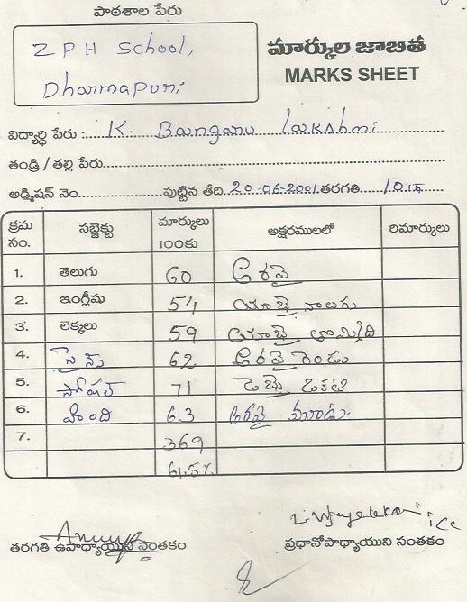 పాఠశాల పేరు
Z P H School,
Dharmapuri
మార్కుల జాబితా
MARKS SHEET
విద్యార్థి పేరు : K Bangaru lakshmi
తండ్రి / తల్లి పేరు
అడ్మిషన్ నెం. పుట్టిన తేది 20-06-2001 తరగతి 10
క్రమ సం. సబ్జెక్టు మార్కులు 100కు అక్షరములలో రిమార్కులు
1. తెలుగు 60 అరవై
2. ఇంగ్లీషు 54 యాభై నాలుగు
3. లెక్కలు 59 యాభై తొమ్మిది
4. సైన్స్ 62 అరవై రెండు
5. సోషల్ 71 డెబ్బై ఒకటి
6. హింది 63 అరవై మూడు
7. 369
61.5%
తరగతి ఉపాధ్యాయుని సంతకం ప్రధానోపాధ్యాయుని సంతకం